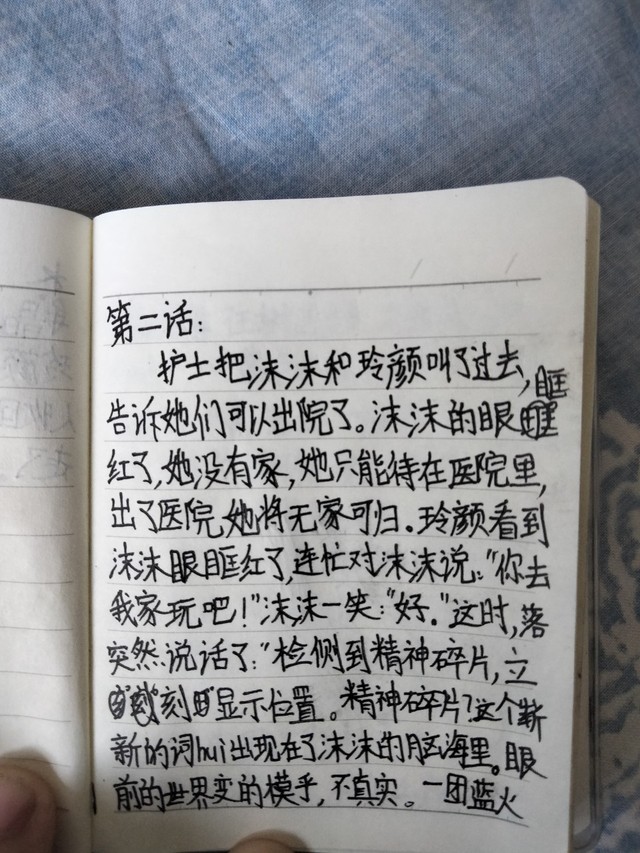 第二话:
护士把沫沫和玲颜叫了过去,
告诉她们可以出院了。沫沫的眼眶
红了,她没有家,她只能待在医院里,
出了医院,她将无家可归。玲颜看到
沫沫眼眶红了,连忙对沫沫说:"你去
我家玩吧!"沫沫一笑:"好."这时,落
突然说话了:"检侧到精神碎片,立
刻显示位置。精神碎片?这个崭
新的词hui出现在了沫沫的脑海里。眼
前的世界变的模乎,不真实。一团蓝火